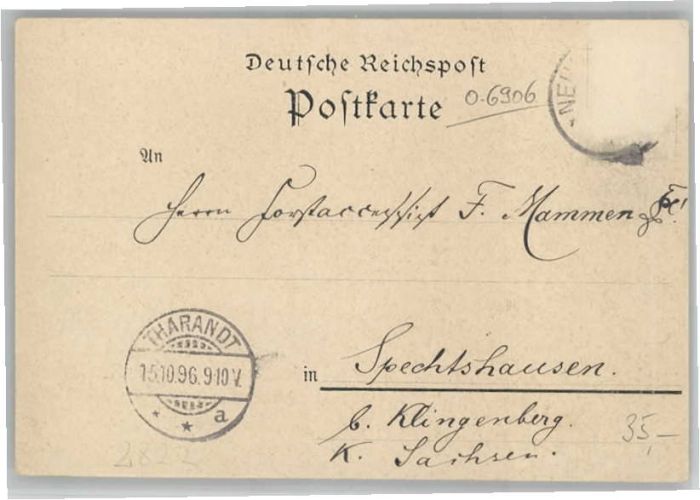 Deutsche Reichspost
Postkarte
O-6906
NEU
An
Herrn Forstaccessist F. Mammen
THARANDT
15.10.96.9-10V.
a
in Spechtshausen.
b. Klingenberg.
K. Sachsen.
35,-
2822